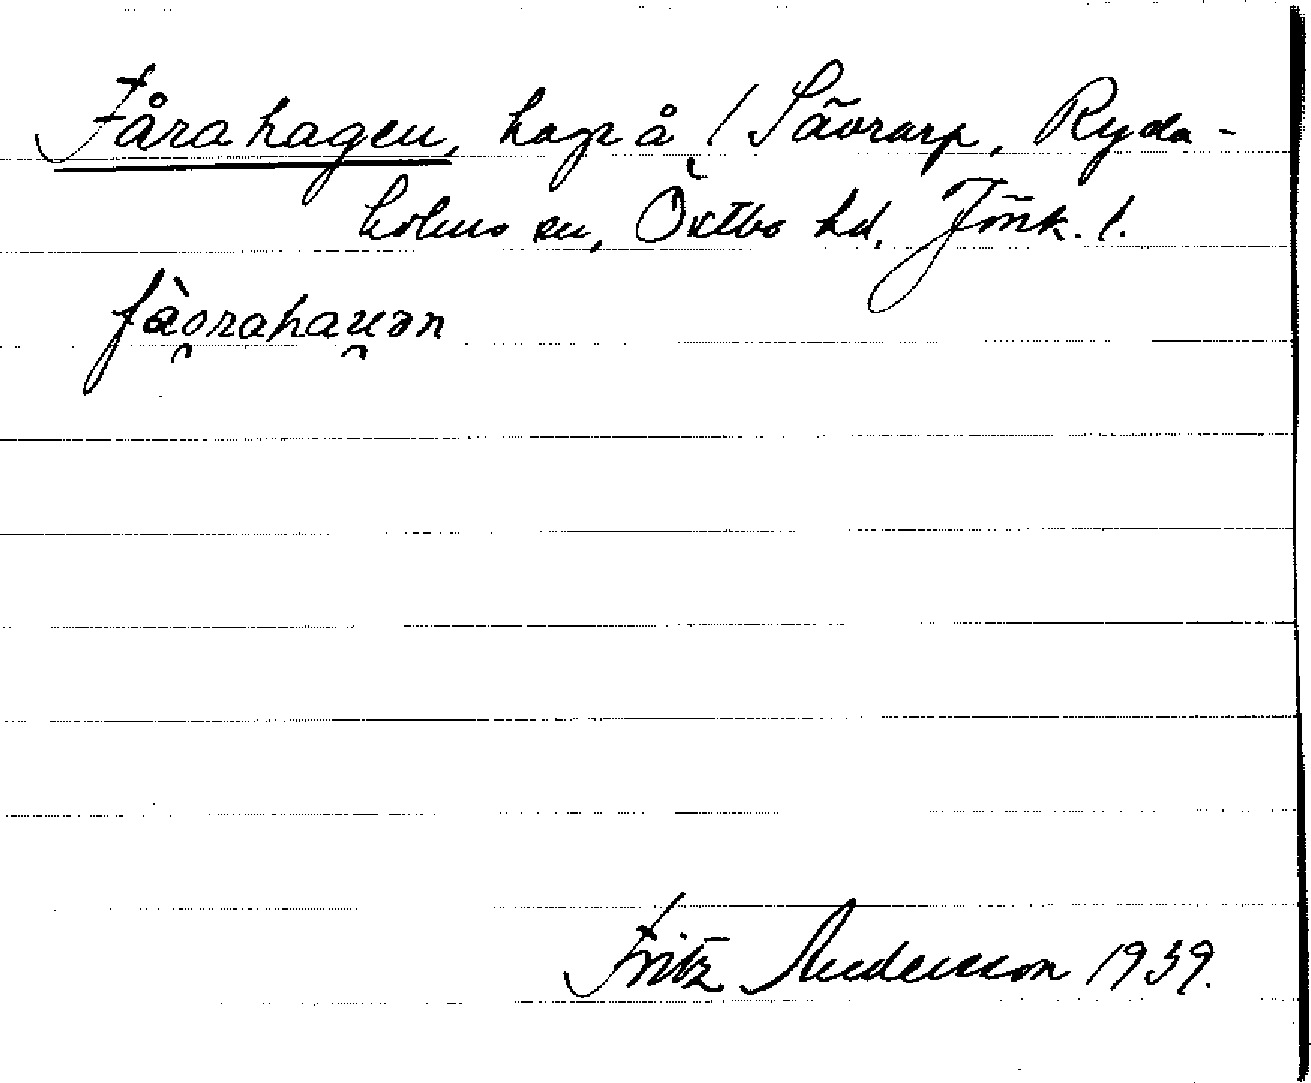 Fårahagen, hage å / Sävrarp, Ryda-
holms sn, Östbo hd, Jönk. l.
fàorahaɤən
Fritz Andersson 1939.